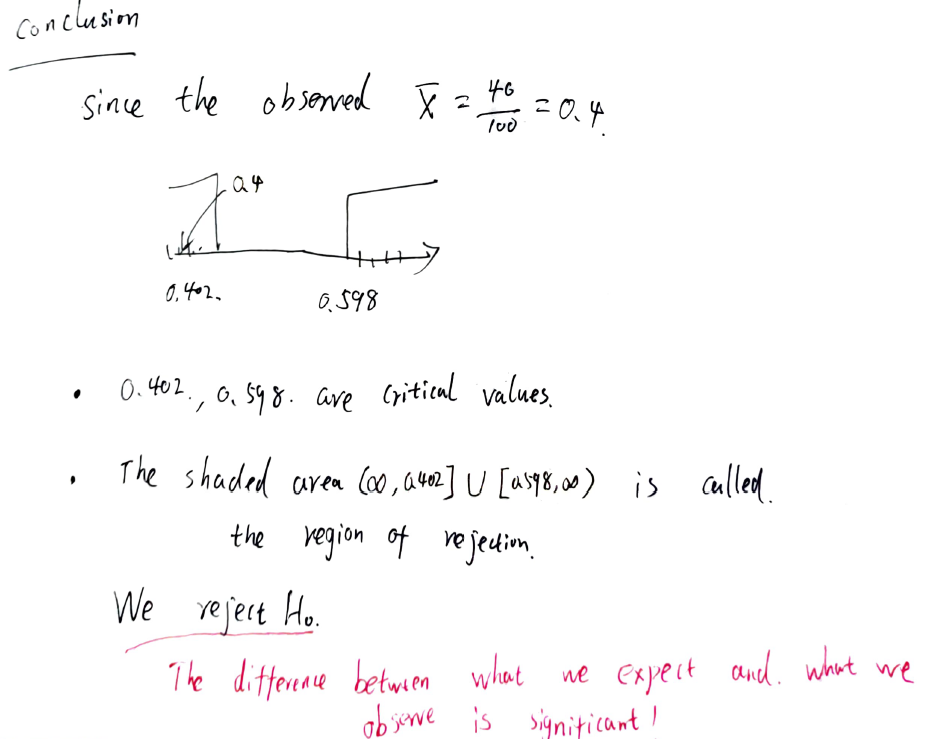 Conclusion
since the observed X̄ = 40/100 = 0.4.
0.4
0.402. 0.598
• 0.402., 0.598. are critical values.
• The shaded area (∞, 0.402] ∪ [0.598, ∞) is called.
the region of rejection.
We reject H₀.
The difference between what we expect and. what we
observe is significant!